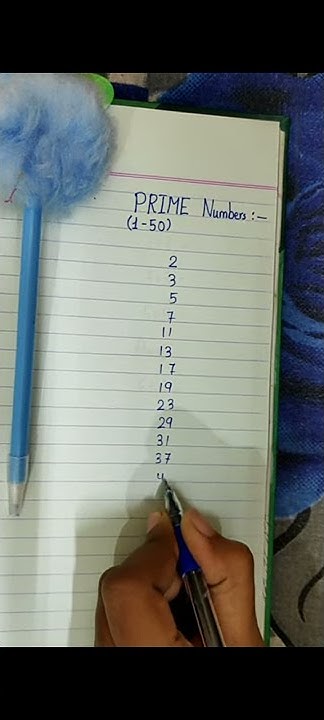 PRIME Numbers :-
(1-50)
2
3
5
7
11
13
17
19
23
29
31
37
4